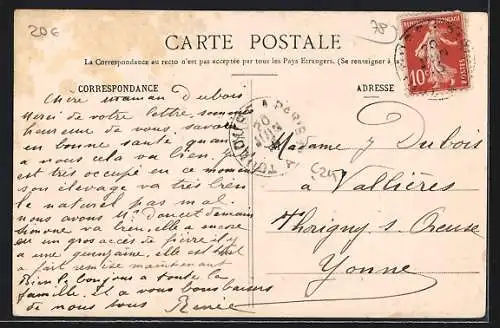 20€
78
CARTE POSTALE
La Correspondance au recto n'est pas acceptée par tous les Pays Etrangers. (Se renseigner à
CORRESPONDANCE
ADRESSE
REPUBLIQUE FRANÇAISE
10c
POSTES
Chère maman Dubois
Merci de votre lettre, sommes
heureux de vous savoir
en bonne santé quant
a nous cela va bien,
est très occupé en ce moment
son élevage va très bien
le naturel pas mal.
nous avons Mr Doucet demain
Simone va bien, elle a encore
eu un gros accès de fièvre il y
a une quinzaine, elle est tout
a fait remise maintenant
Bien le bonjour a toute la
famille, et a vous bons baisers
de nous tous Renée
A PARIS
20
Madame J Dubois
a Vallières
Thorigny s. Oreuse
Yonne